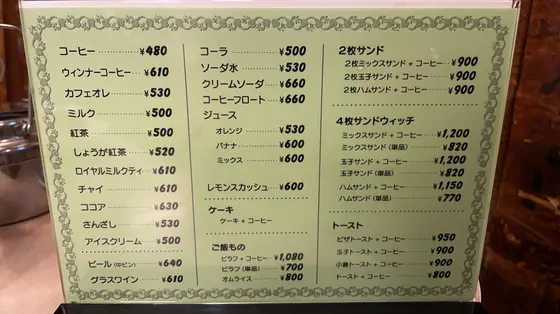 コーヒー ¥480
ウィンナーコーヒー ¥610
カフェオレ ¥530
ミルク ¥500
紅茶 ¥500
しょうが紅茶 ¥520
ロイヤルミルクティ ¥610
チャイ ¥610
ココア ¥630
さんざし ¥530
アイスクリーム ¥500
ビール (中ビン) ¥640
グラスワイン ¥610
コーラ ¥500
ソーダ水 ¥530
クリームソーダ ¥660
コーヒーフロート ¥660
ジュース
オレンジ ¥530
バナナ ¥600
ミックス ¥600
レモンスカッシュ ¥600
ケーキ
ケーキ + コーヒー
ご飯もの
ピラフ + コーヒー ¥1,080
ピラフ (単品) ¥700
オムライス ¥800
2枚サンド
2枚ミックスサンド + コーヒー ¥900
2枚玉子サンド + コーヒー ¥900
2枚ハムサンド + コーヒー ¥900
4枚サンドウィッチ
ミックスサンド + コーヒー ¥1,200
ミックスサンド (単品) ¥820
玉子サンド + コーヒー ¥1,200
玉子サンド (単品) ¥820
ハムサンド + コーヒー ¥1,150
ハムサンド (単品) ¥770
トースト
ピザトースト + コーヒー ¥950
玉子トースト + コーヒー ¥900
小倉トースト + コーヒー ¥900
トースト + コーヒー ¥800